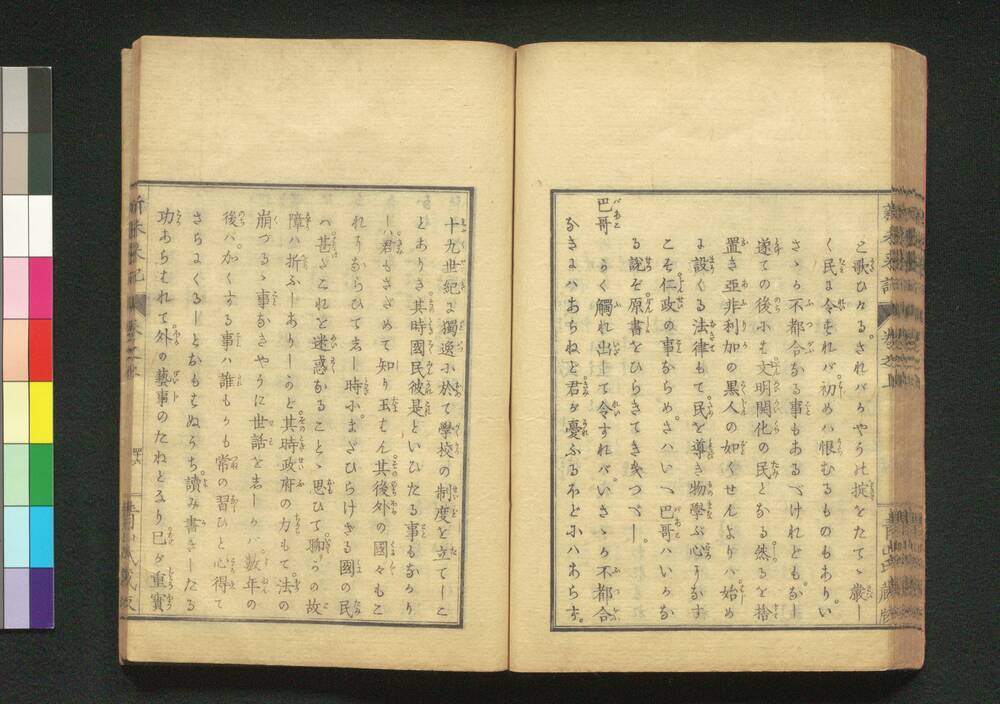 と歌ひける。されバかやうの掟をたてゝ嚴し
く民に令すれバ初めハ恨むるものもあり。い
さゝか不都合なる事もあるべけれとも。なし
遂ての後にも文明開化の民となる然るを捨
置き亜非利加の黒人の如くせんよりハ始め
に設くる法律もて。民を導き物學ぶ心りなす
こそ仁政の事ならめ。さハいへ巴哥ハいかな
る説ぞ。原書をひらきてき矣つべし。
巴哥 らく觸れ出して令すれバ。いさゝか不都合
なきにハあらねど君が憂ふるほどにハあらす。
十九世紀に獨逸に於て學校の制度を立てしこ
とありき。其時國民彼是といひたる事もなかり
しハ。君もさだめて知り玉はん。其後外の國々もこ
れにならひてゑし時に。まだひらけざる國の民
ハ。甚だこれを迷惑なることゝ思ひて。聊かの故
障ハ折ふしありしかど。其時政府の力もて。法の
崩づるゝ事なきやうに世話をゑしかバ。數年の
後ハ。かくする事ハ誰もかも常の習ひと心得て
さらにくるしとおもはぬうち。讀み書きしたる
功あらはれて。外の藝事のたねとなり。己が重寳